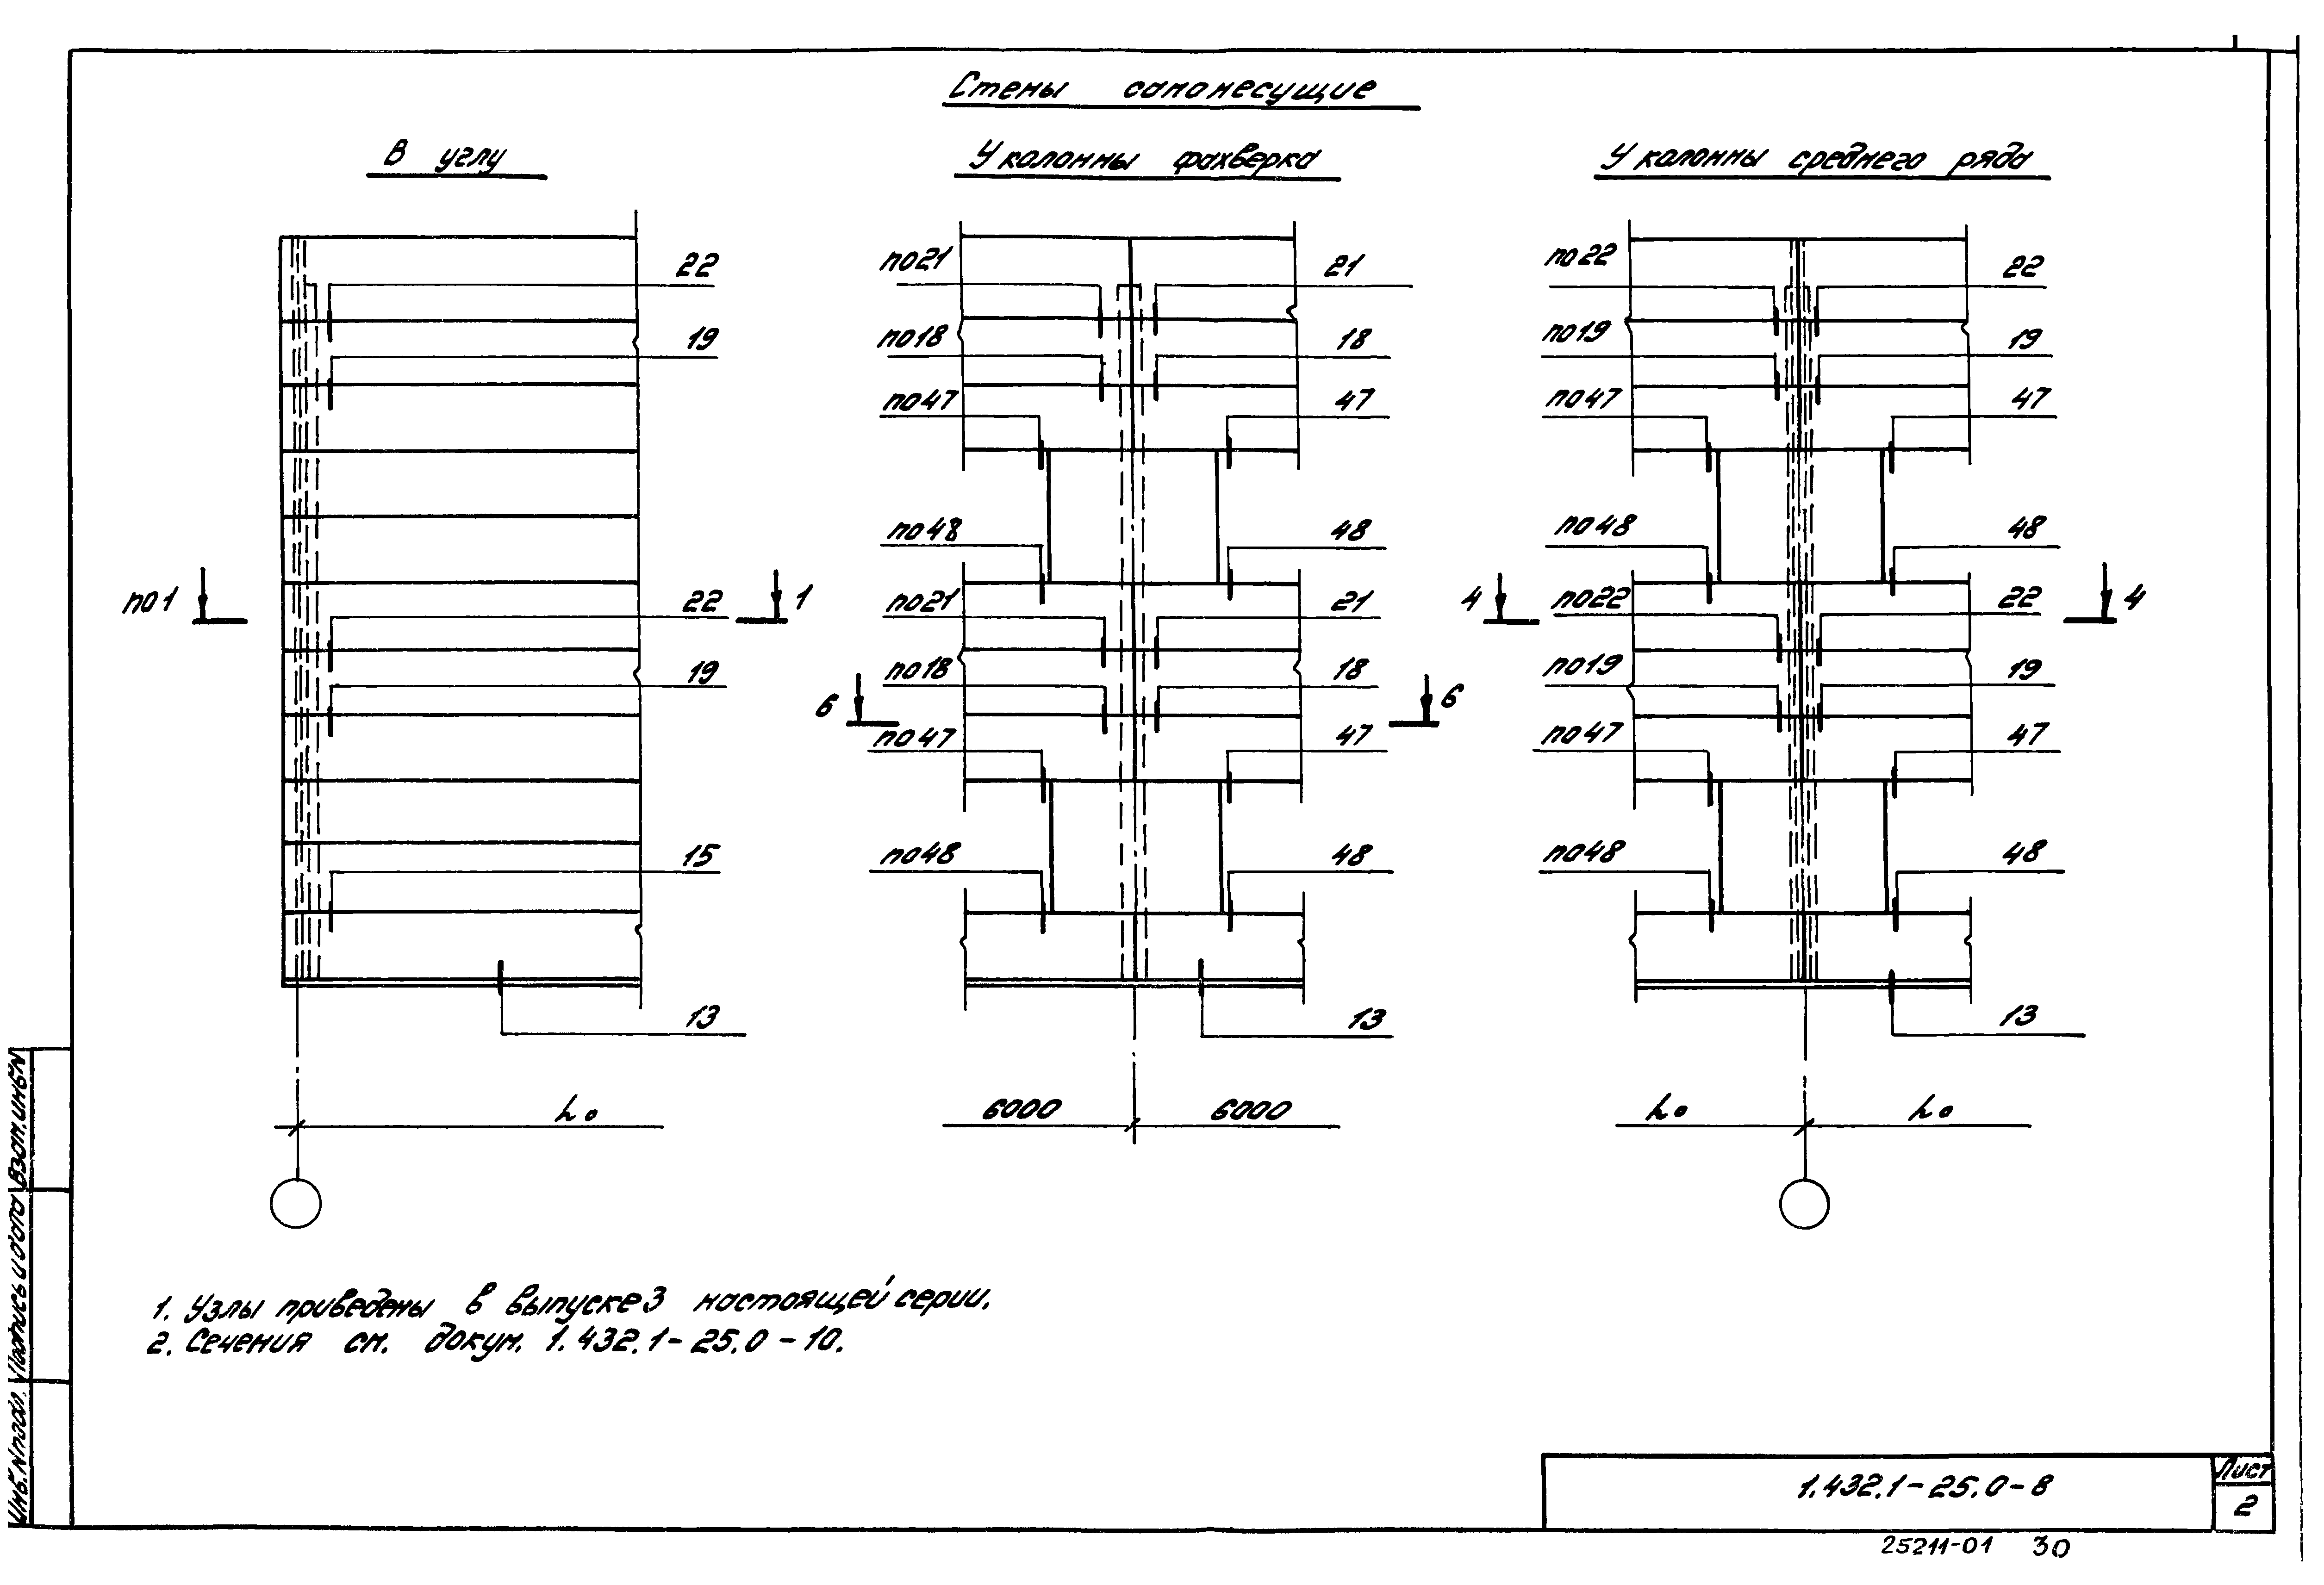 Стены самонесущие
В углу
У колонны фахверка
У колонны среднего ряда
22
19
по1
1
22
19
15
13
Lо
по21
21
по18
18
по47
47
по48
48
по21
21
по18
18
6
6
по47
47
по48
48
13
6000
6000
по22
22
по19
19
по47
47
по48
48
4
по22
22
4
по19
19
по47
47
по48
48
13
Lо
Lо
1. Узлы приведены в выпуске 3 настоящей серии.
2. Сечения см. докум. 1.432.1-25.0-10.
Инв.N подл.
Подпись и дата
Взам.инв.N
1.432.1-25.0-8
Лист
2
25211-01 30